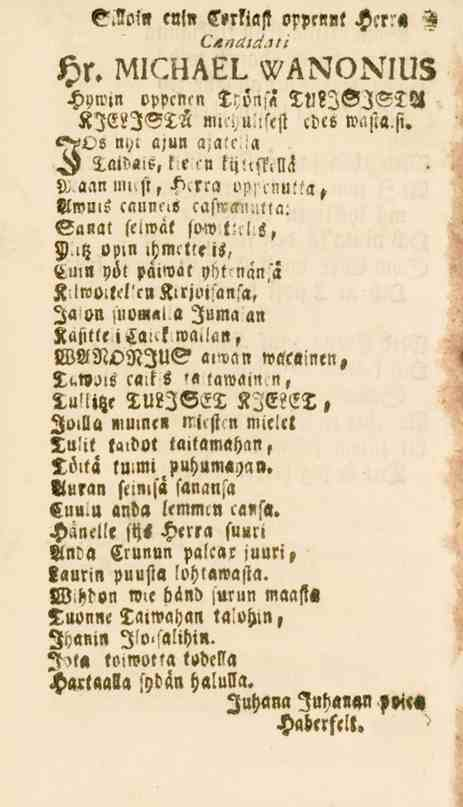 Silloin cuin Corkiast oppenut Herra
Candidati
Hr. MICHAEL WANONIUS
Hywin oppenen Työnsä TULISISTA
KIELISTÄ miehulisest edes wasta.si.
JOs nyt ajun ajatella
Taidais, kielen kijteskellä
Maan miest, Herra oppenutta,
Awuis cauneis caswanutta:
Sanat selwät sowittelis,
Nijtz opin ihmetteis,
Cuin yöt päiwät yhtenänsä
Kilwoitellen Kirjoisansa,
Jalon suomalla Jumalan
Käsitteli Caickiwallan,
WANONIUS aiwan wacainen,
Tawois caikis taitawainen,
Tullitze TULISET KIELET,
Joilla muinen miesten mielet
Tulit taidot taitamahan,
Töitä tuimi puhumahan.
Auran seinisä sanansa
Cuulu anda lemmen cansa.
Hänelle sijs Herra suuri
Anda Crunun palcax juuri,
Laurin puusta lohtawasta.
Wihdon wie händ surun maasta
Tuonne Taiwahan talohin,
Ihanin Iloisalihin.
Jota toiwotta todella
Hartaalla sydän halulla.
Juhana Juhanan poica
Haberfelt.